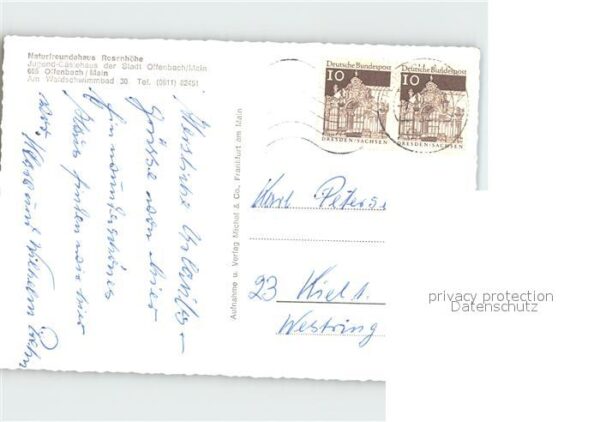 Naturfreundehaus Rosenhöhe
Jugend-Gästehaus der Stadt Offenbach/Main
605 Offenbach/Main
Am Waldschwimmbad 30 Tel. (0611) 82451
Deutsche Bundespost
10
DRESDEN/SACHSEN
Deutsche Bundespost
10
DRESDEN/SACHSEN
Herzliche Urlaubs-
Grüsse von hier
Ein wunderschönes
Haus finden wir hier
vor.
und Wilhelm
Aufnahme u. Verlag Michel & Co., Frankfurt am Main
Karl Peters
23 Kiel 1
Westring
privacy protection
Datenschutz